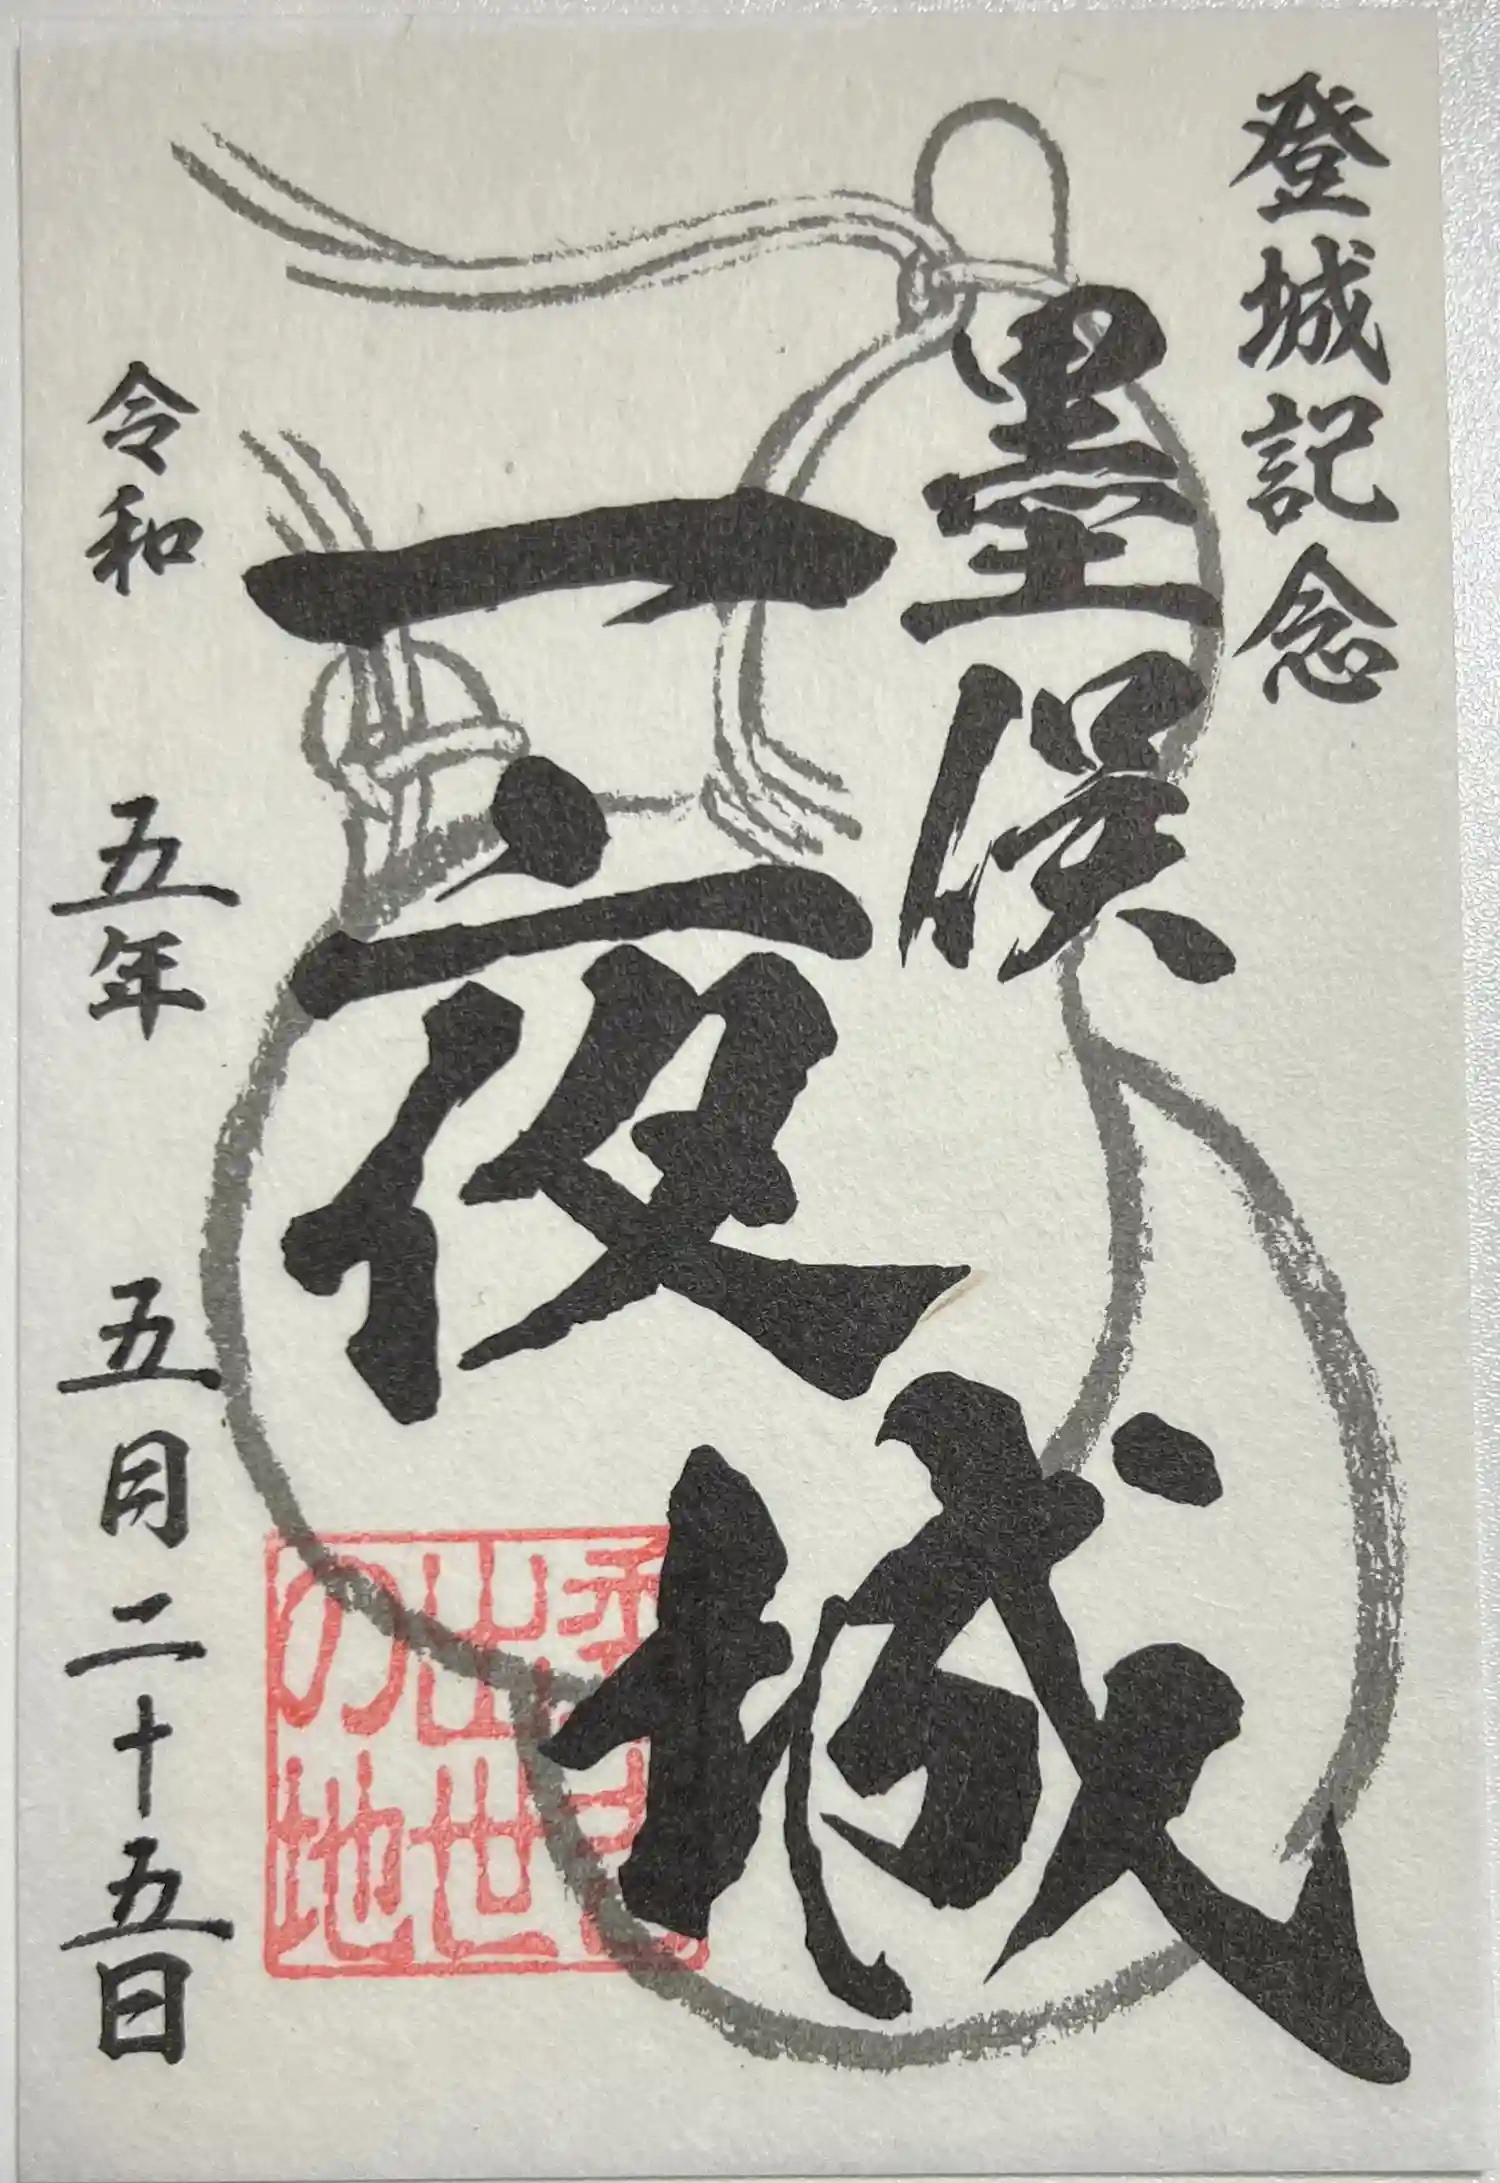 登城記念
墨俣
一夜城
出世
の地
令和 五年 五月二十五日